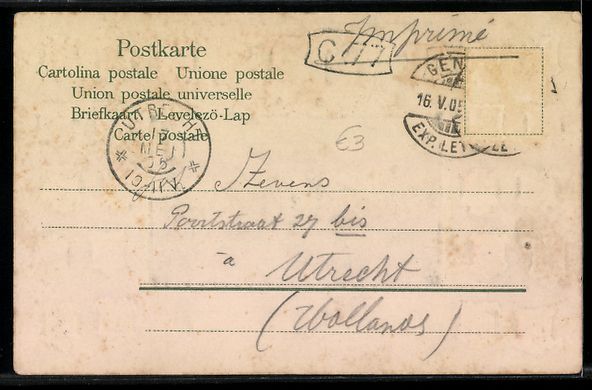 Imprimé
Postkarte
Cartolina postale Unione postale
Union postale universelle
Briefkaart Levelező-Lap
Carte postale
C 17
GEN
16. V. 05
EXP. LET
UTRECHT
MEI
05
€3
Zevens
Poortstraat 27 bis
à
Utrecht
(Hollande)